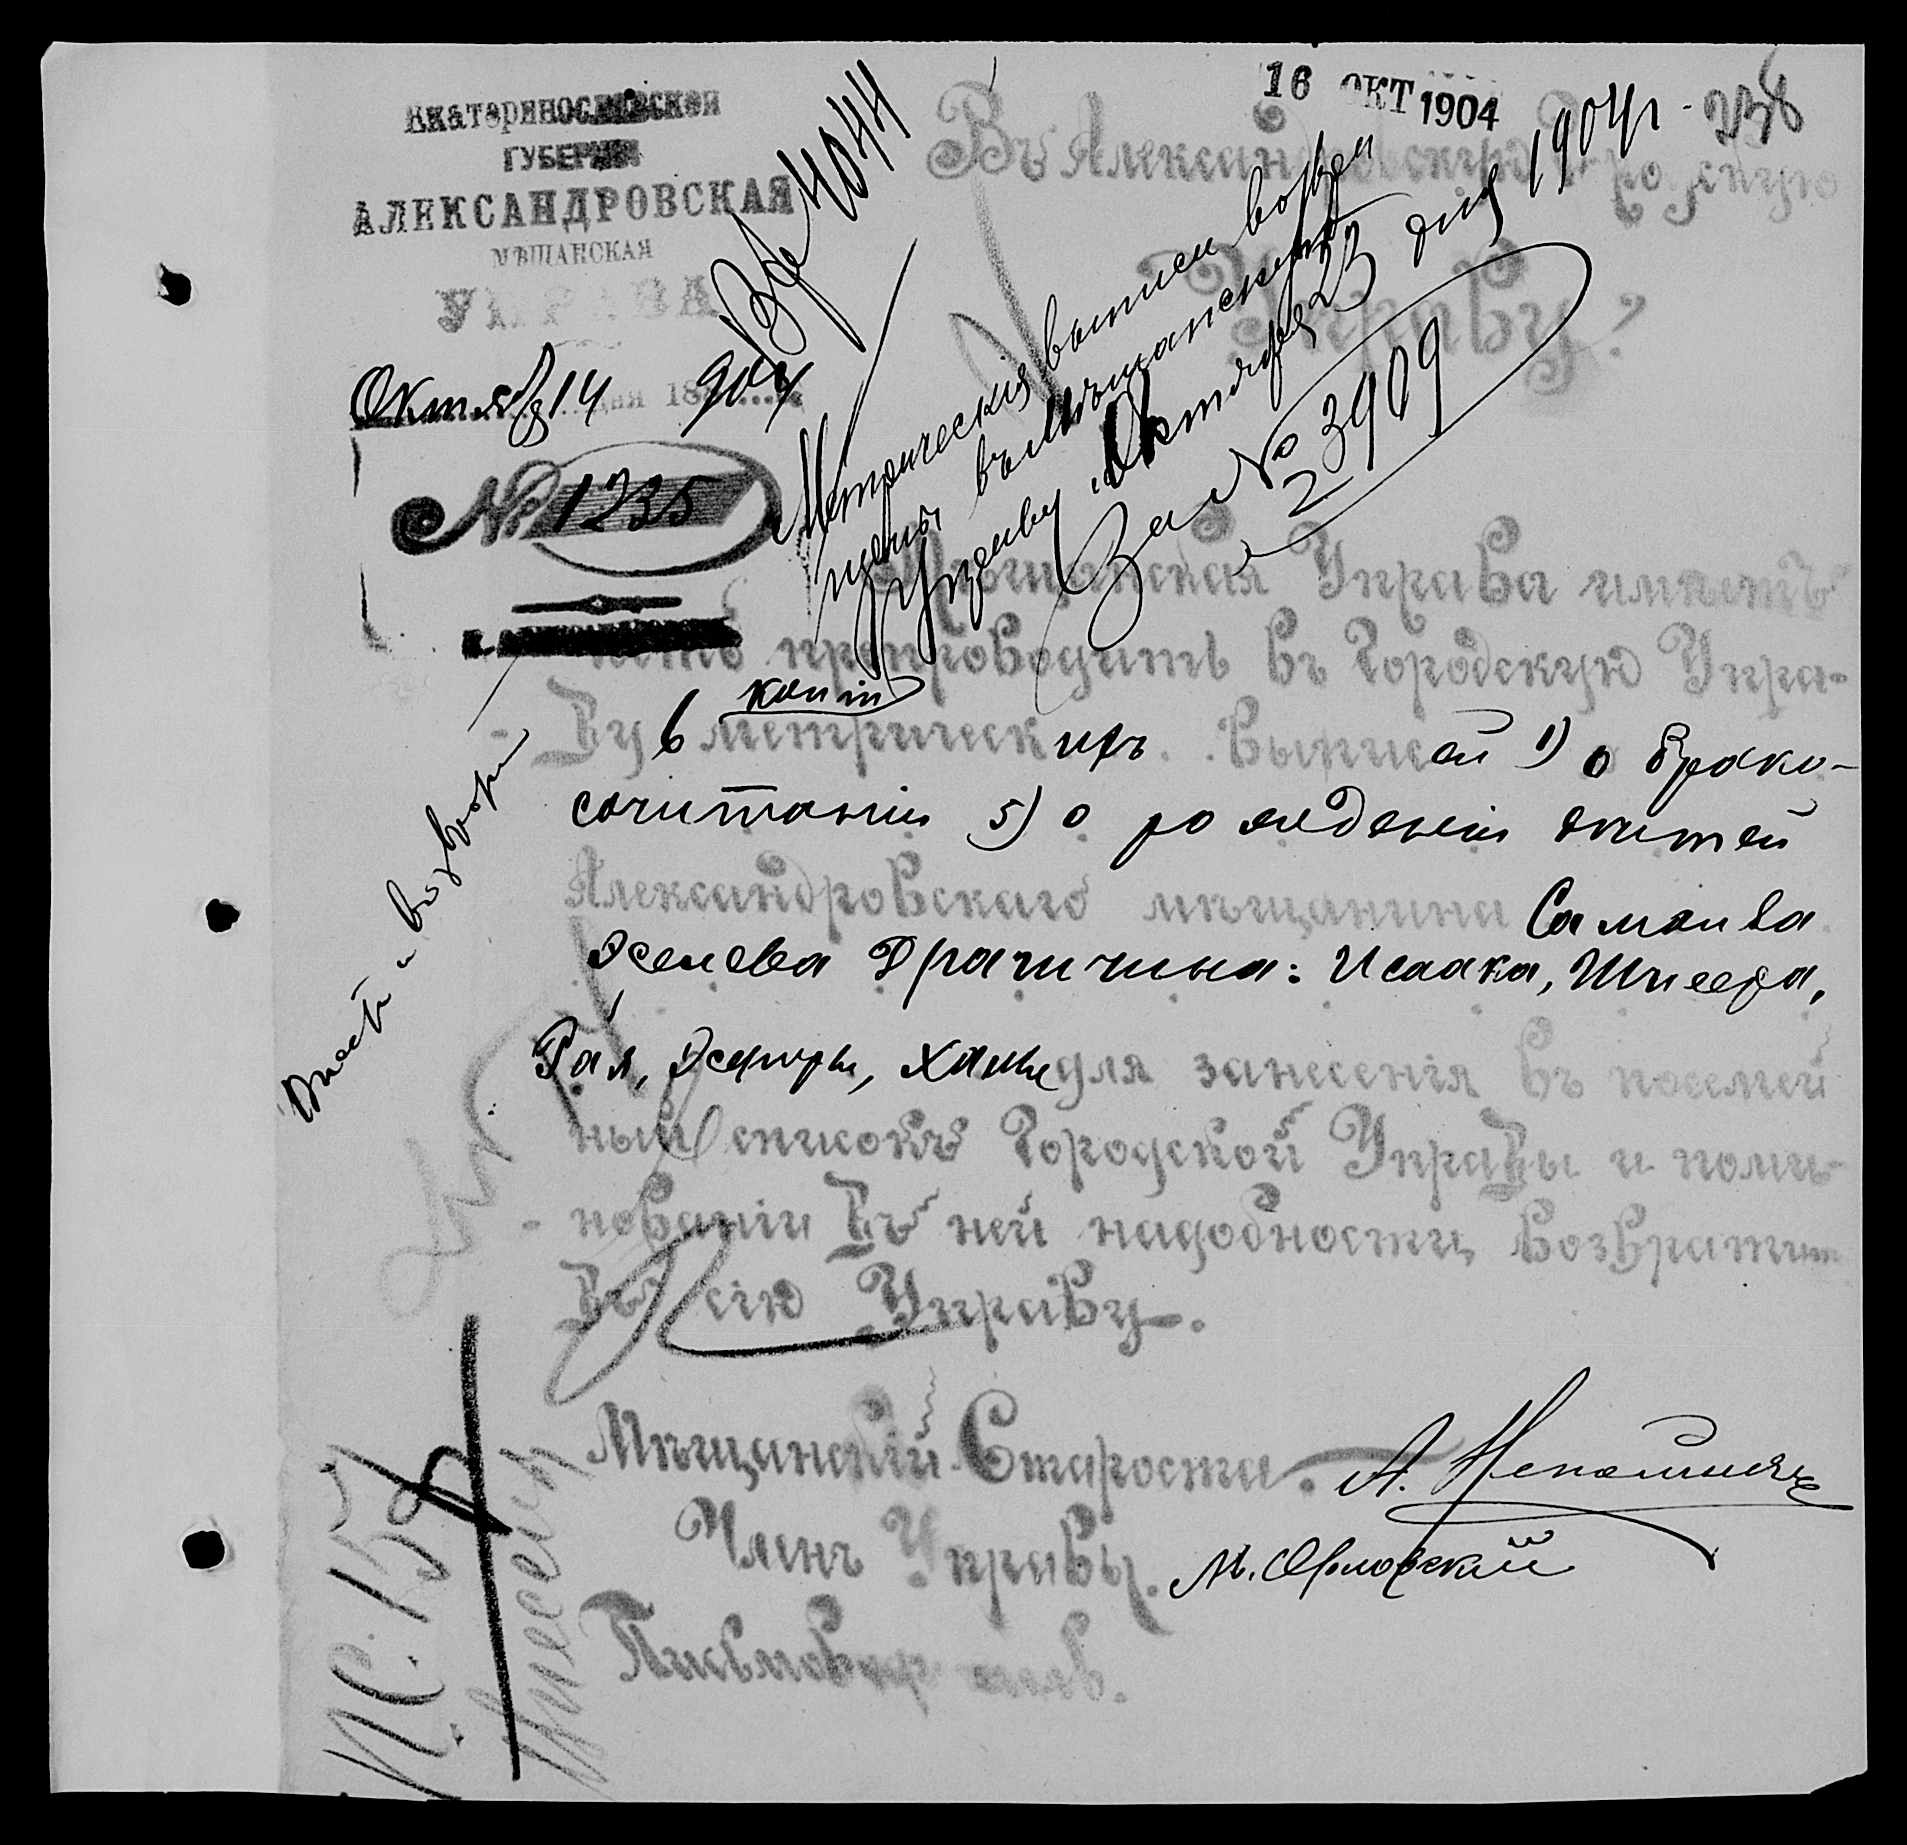 Екатеринославской
ГУБЕРНІИ
АЛЕКСАНДРОВСКАЯ
МѢЩАНСКАЯ
УПРАВА
Октября 14 дня 1904
№ 1235
16 ОКТ 1904
238
Въ Александровскую Городскую
Управу.
Вх 4044
Метрическія выписи возвра
щены въ Мѣщанскую
Управу Октября 23 дня 1904 г.
За № 3909
2
Мѣщанская Управа имѣетъ
честь препроводить въ Городскую Упра-
ву 6 копій метрическихъ выписей 1) о брако-
сочитаніи 5) о рожденіи дѣтей
Александровскаго мѣщанина Самоила
Эселева Драпичина: Исаака, Шнеера,
Рая, Эсфирь, Ханы для занесенія въ посемей
ный списокъ Городской Управы и поми-
нованіи въ ней надобности, возвратить
въ сію Управу.
Внести и возврат
Мѣщанскій Староста А. Непомнящ
Членъ Управы. М. Орловскій
Письмовод
П.С. 153
Внесены